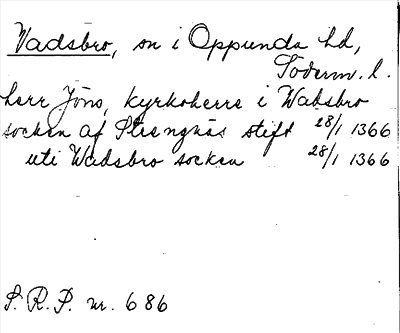 Vadsbro, sn i Oppunda hd,
Söderm. l.
herr Jöns, kyrkoherre i Wadsbro
socken af Strengnäs stift 28/1 1366
uti Wadsbro socken 28/1 1366
S. R. P. nr. 686